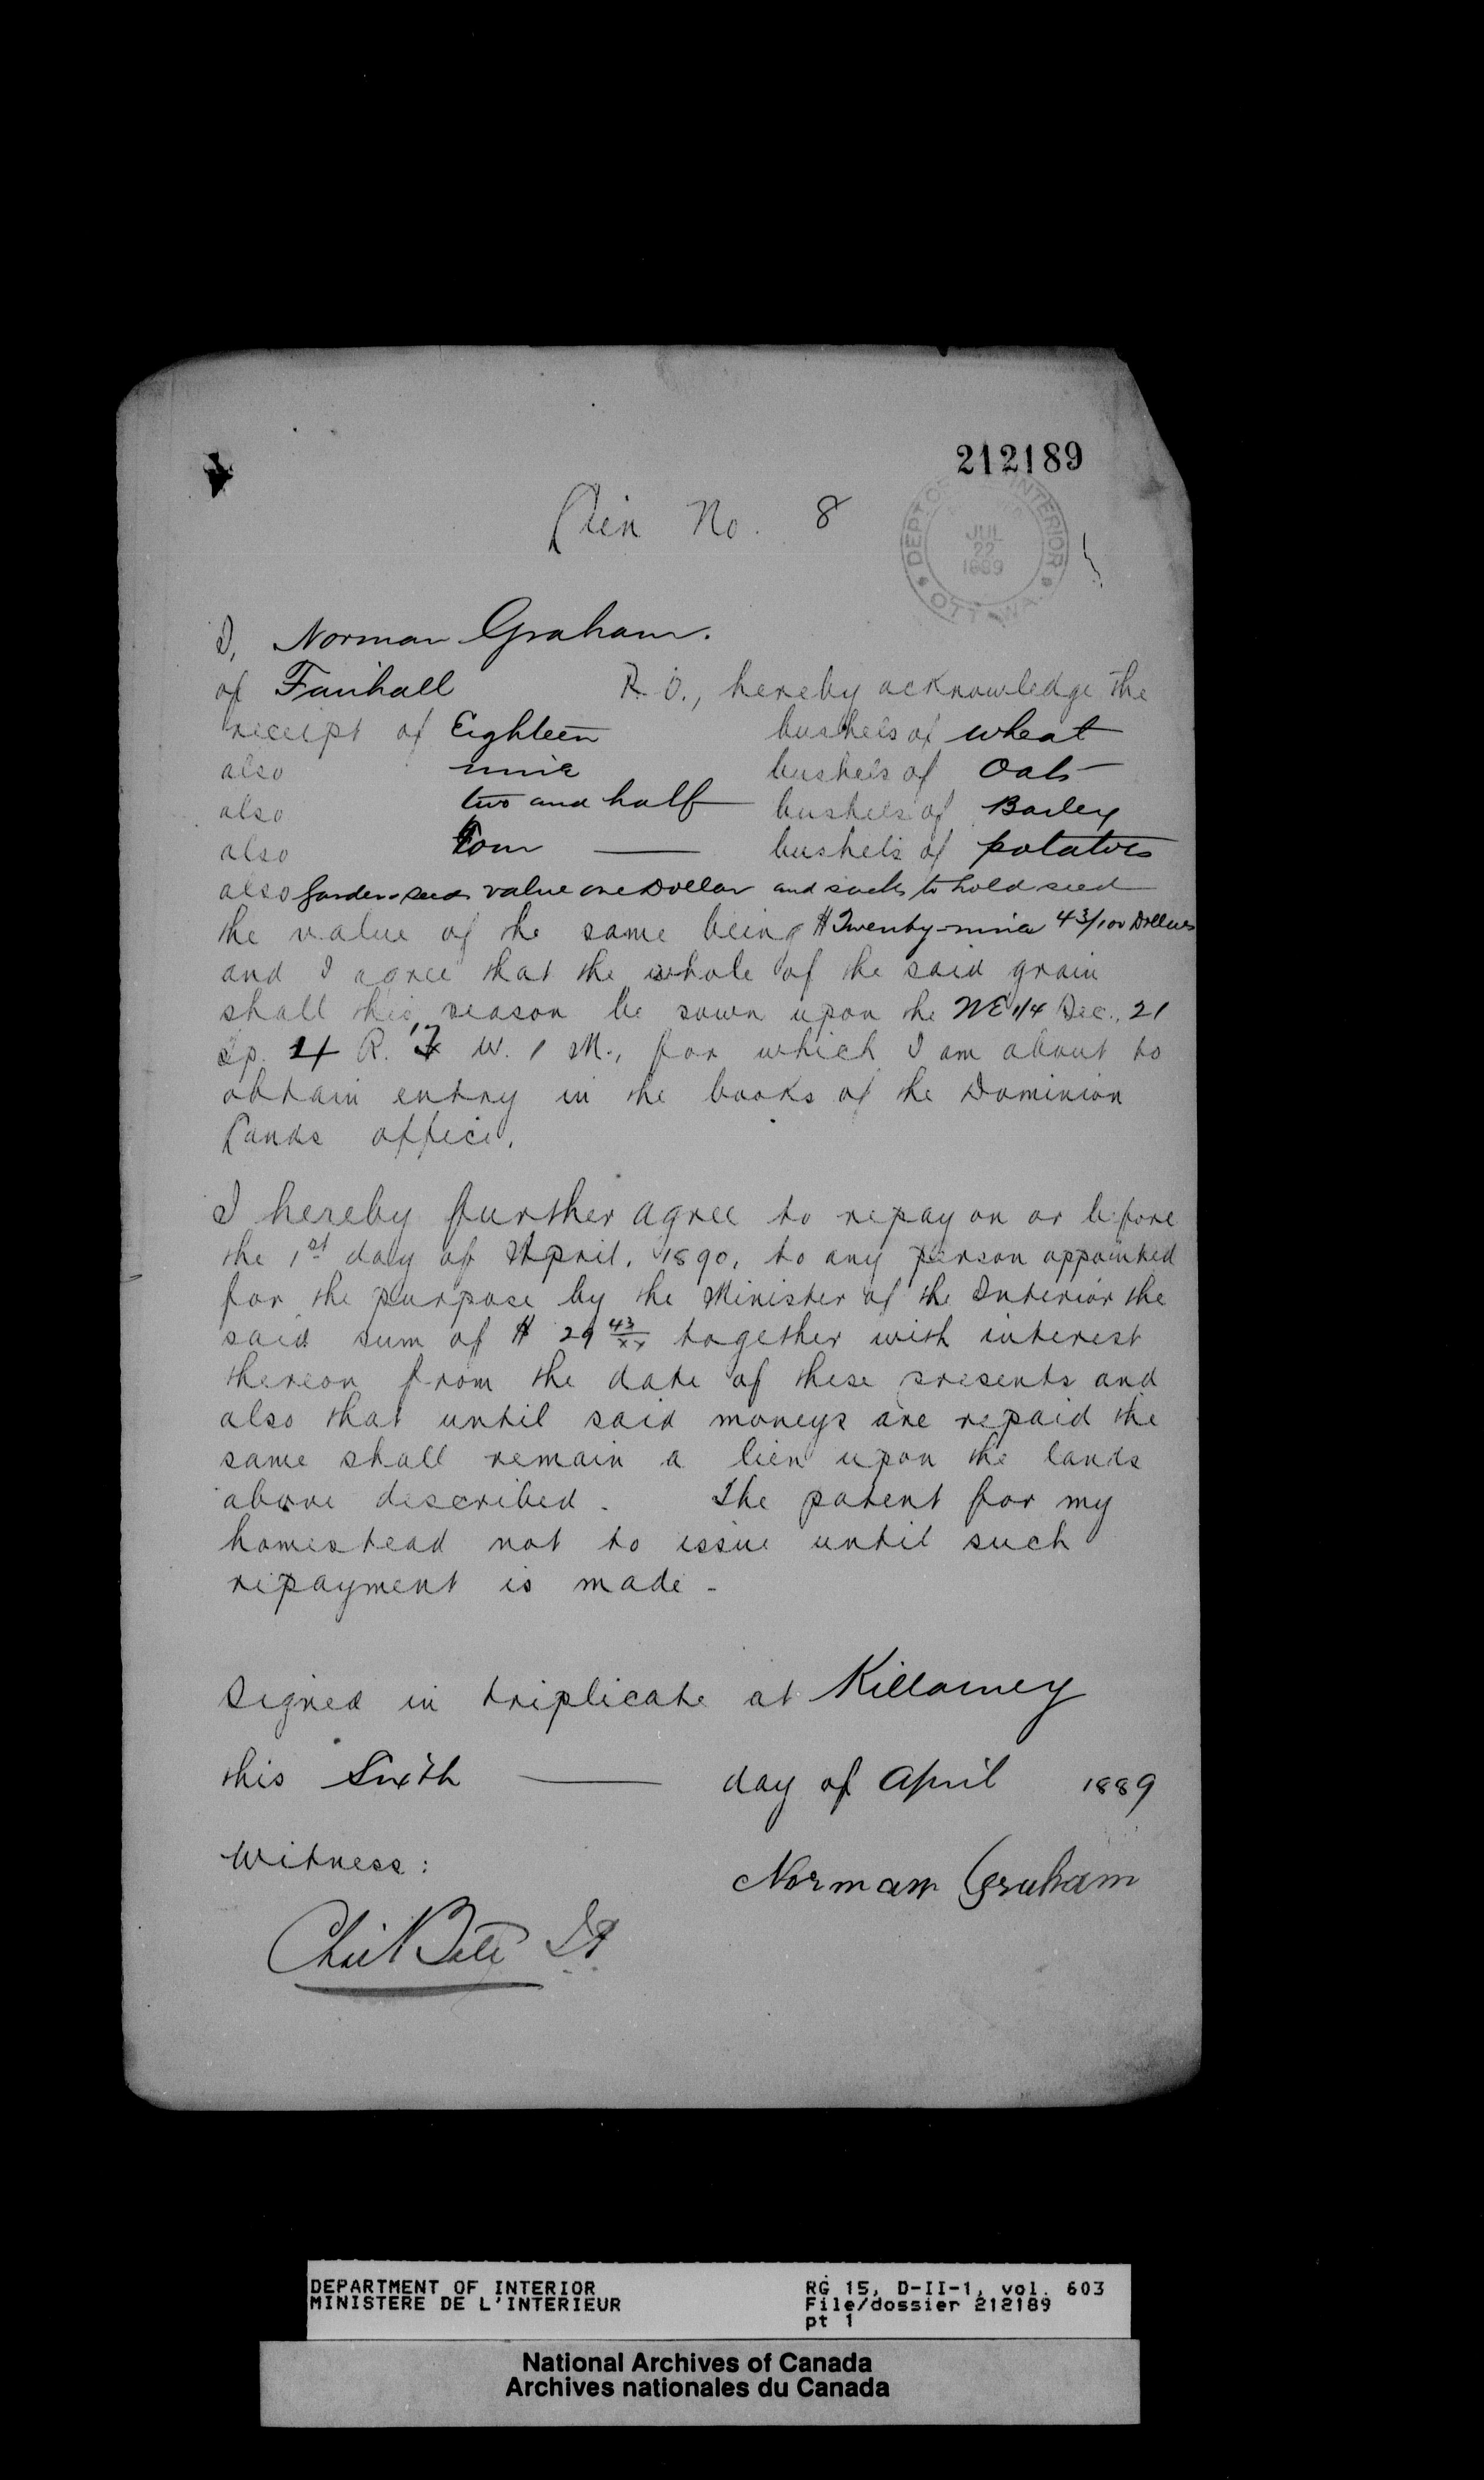 212189
Lien No. 8
DEPT OF INTERIOR
JUL
22
1889
OTTAWA
I, Norman Graham.
of Fairhall P.O., hereby acknowledge the
receipt of Eighteen bushels of wheat
also nine bushels of Oats
also two and half bushels of Barley
also Four — bushels of potatoes
also Garden seeds value one Dollar and sacks to hold seed
the value of the same being $ Twenty-nine 43/100 Dollars
and I agree that the whole of the said grain
shall this season be sown upon the NE 1/4 Sec. 21
Tp. 4 R. 17 W. 1 M., for which I am about to
obtain entry in the books of the Dominion
Lands office.
I hereby further agree to repay on or before
the 1st day of April, 1890, to any person appointed
for the purpose by the Minister of the Interior the
said sum of $ 29 43/xx together with interest
thereon from the date of these presents and
also that until said moneys are repaid the
same shall remain a lien upon the lands
above described. The patent for my
homestead not to issue until such
repayment is made -
Signed in triplicate at Killarney
this Sixth — day of April 1889
Witness:
Norman Graham
DEPARTMENT OF INTERIOR
MINISTERE DE L'INTERIEUR
RG 15, D-II-1, vol. 603
File/dossier 212189
pt 1
National Archives of Canada
Archives nationales du Canada